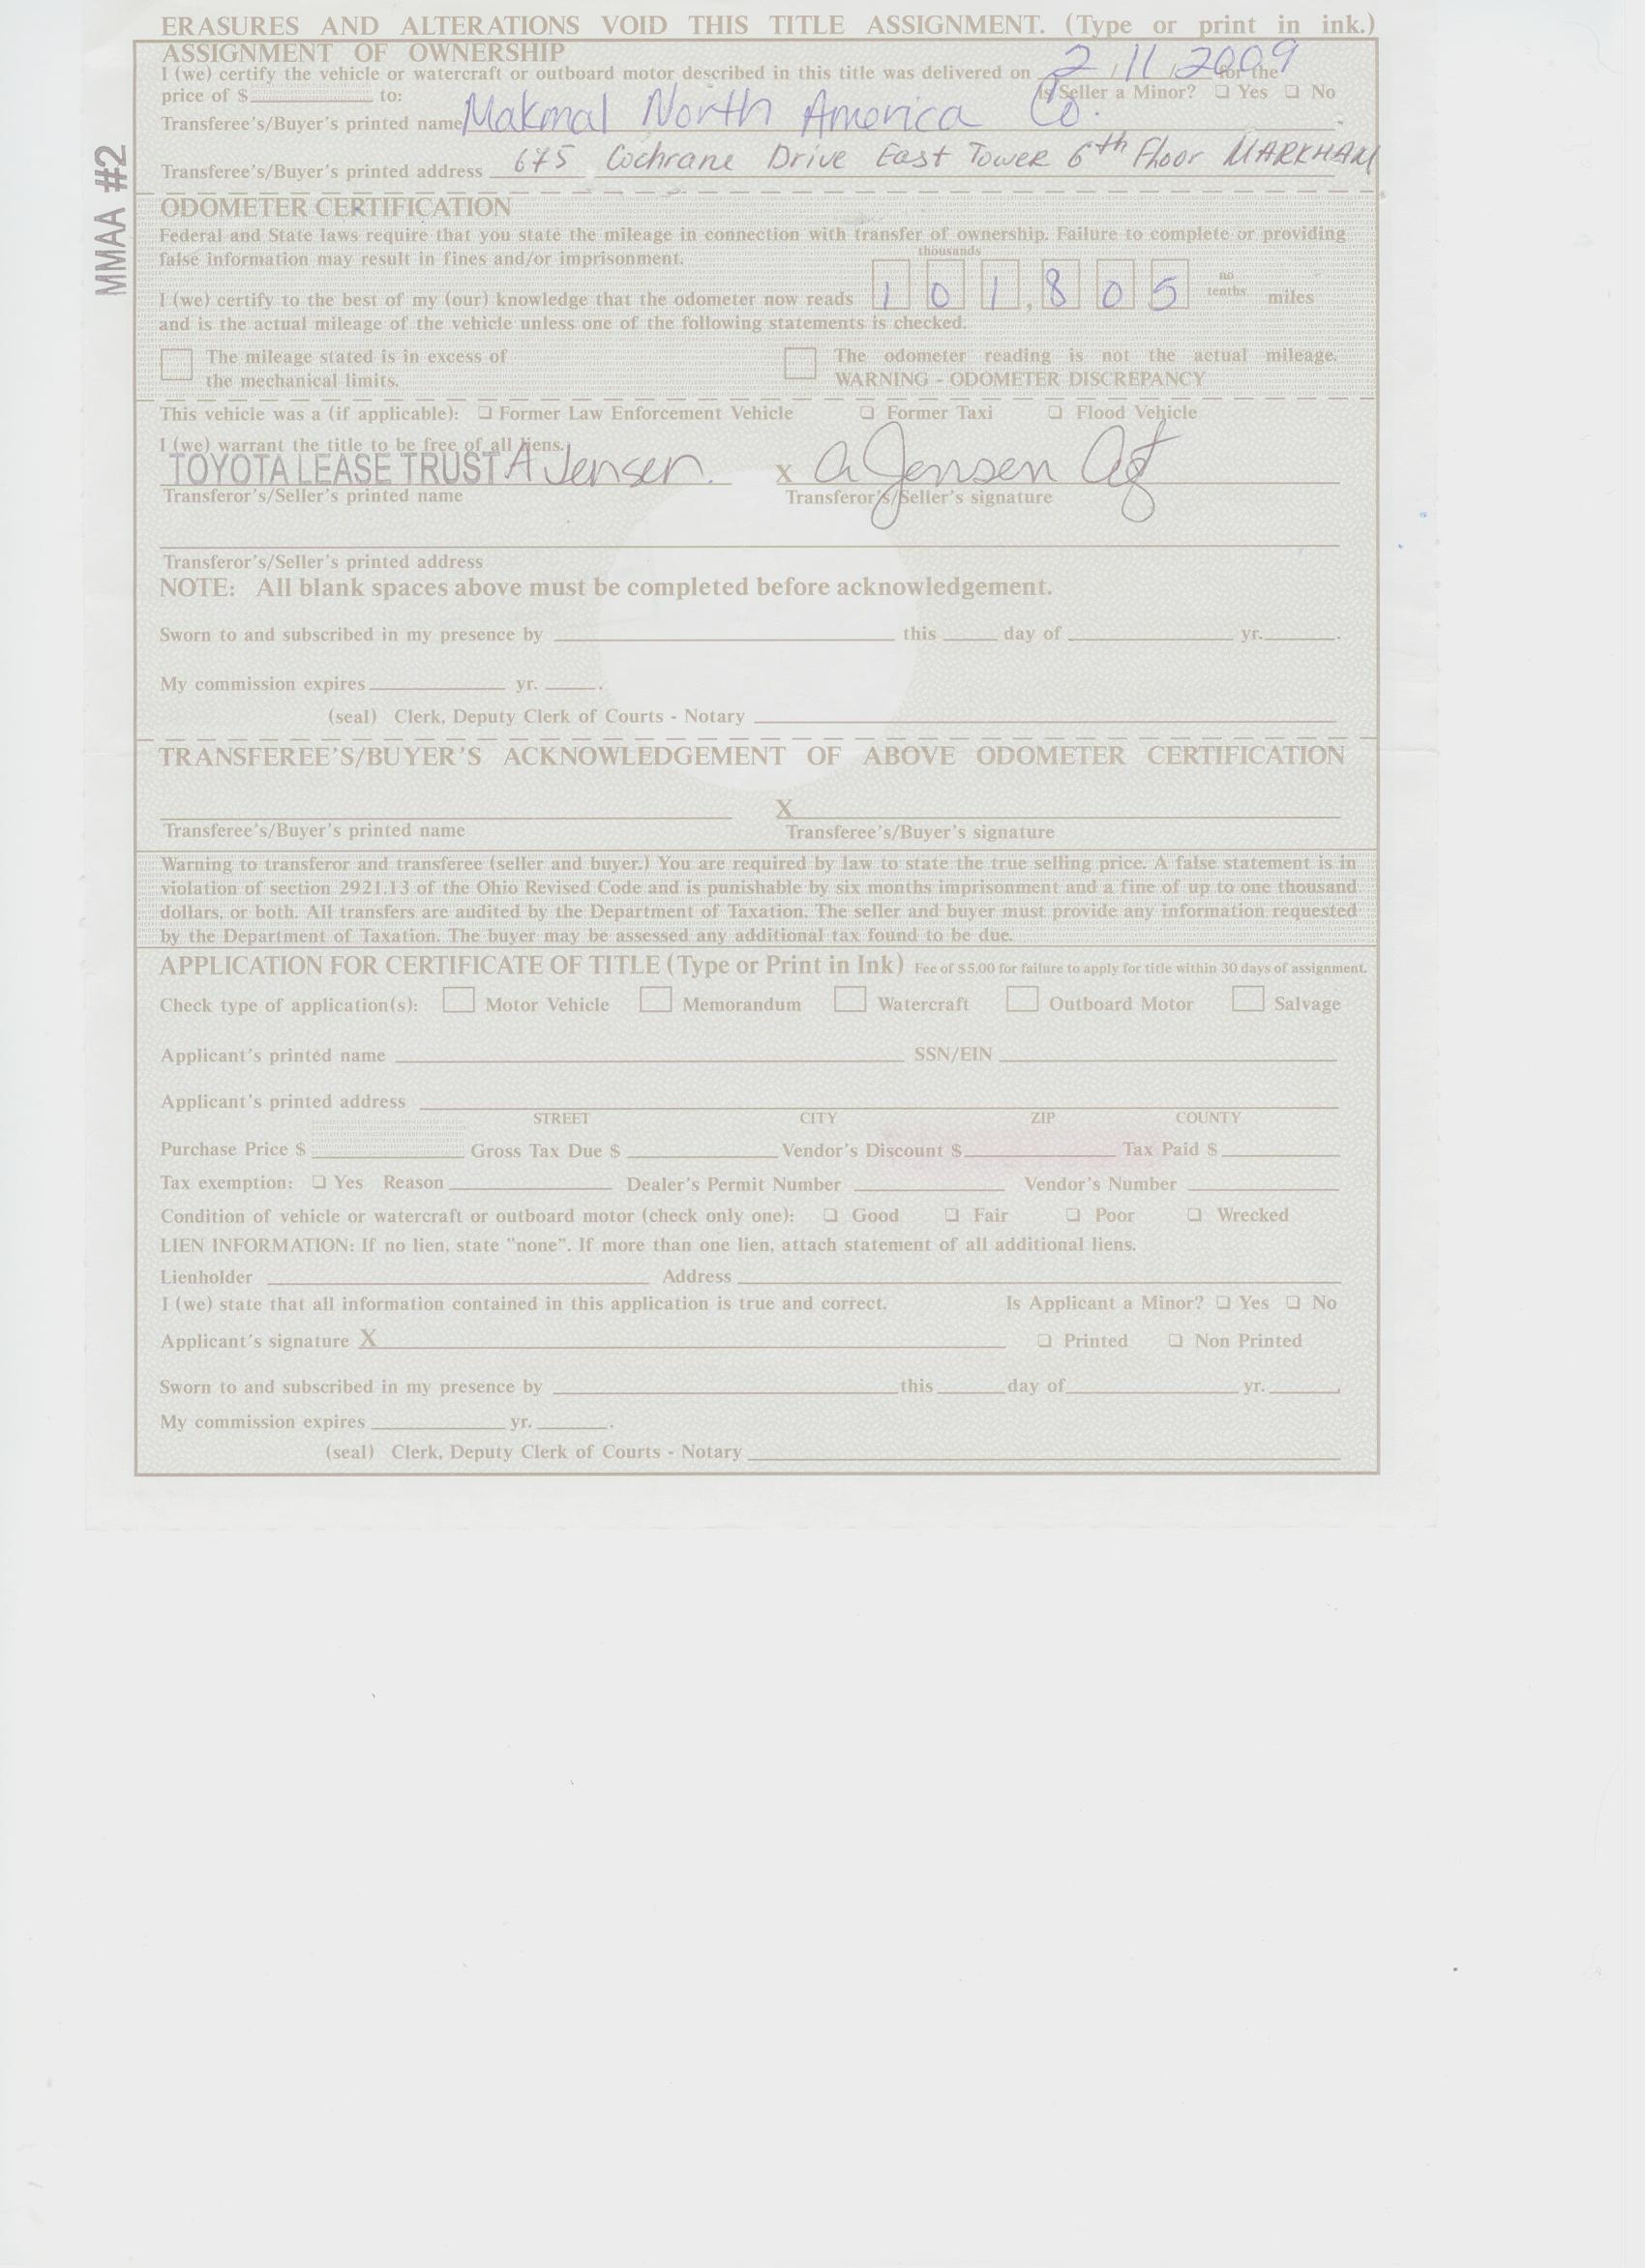 ERASURES AND ALTERATIONS VOID THIS TITLE ASSIGNMENT. (Type or print in ink.)
ASSIGNMENT OF OWNERSHIP
I (we) certify the vehicle or watercraft or outboard motor described in this title was delivered on 2 / 11 / 2009 for the
price of $ to: Is Seller a Minor? ❏ Yes ❏ No
Transferee's/Buyer's printed name Makmal North America Co.
Transferee's/Buyer's printed address 675 Cochrane Drive East Tower 6th Floor MARKHAM
MMAA #2
ODOMETER CERTIFICATION
Federal and State laws require that you state the mileage in connection with transfer of ownership. Failure to complete or providing
false information may result in fines and/or imprisonment.
thousands
I (we) certify to the best of my (our) knowledge that the odometer now reads 1 0 1 , 8 0 5 no tenths miles
and is the actual mileage of the vehicle unless one of the following statements is checked.
The mileage stated is in excess of The odometer reading is not the actual mileage.
the mechanical limits. WARNING - ODOMETER DISCREPANCY
This vehicle was a (if applicable): ❏ Former Law Enforcement Vehicle ❏ Former Taxi ❏ Flood Vehicle
I (we) warrant the title to be free of all liens.
TOYOTA LEASE TRUST A Jensen X A Jensen Agt
Transferor's/Seller's printed name Transferor's/Seller's signature
Transferor's/Seller's printed address
NOTE: All blank spaces above must be completed before acknowledgement.
Sworn to and subscribed in my presence by this day of yr. .
My commission expires yr. .
(seal) Clerk, Deputy Clerk of Courts - Notary
TRANSFEREE'S/BUYER'S ACKNOWLEDGEMENT OF ABOVE ODOMETER CERTIFICATION
X
Transferee's/Buyer's printed name Transferee's/Buyer's signature
Warning to transferor and transferee (seller and buyer.) You are required by law to state the true selling price. A false statement is in
violation of section 2921.13 of the Ohio Revised Code and is punishable by six months imprisonment and a fine of up to one thousand
dollars, or both. All transfers are audited by the Department of Taxation. The seller and buyer must provide any information requested
by the Department of Taxation. The buyer may be assessed any additional tax found to be due.
APPLICATION FOR CERTIFICATE OF TITLE (Type or Print in Ink) Fee of $5.00 for failure to apply for title within 30 days of assignment.
Check type of application(s): Motor Vehicle Memorandum Watercraft Outboard Motor Salvage
Applicant's printed name SSN/EIN
Applicant's printed address
STREET CITY ZIP COUNTY
Purchase Price $ Gross Tax Due $ Vendor's Discount $ Tax Paid $
Tax exemption: ❏ Yes Reason Dealer's Permit Number Vendor's Number
Condition of vehicle or watercraft or outboard motor (check only one): ❏ Good ❏ Fair ❏ Poor ❏ Wrecked
LIEN INFORMATION: If no lien, state "none". If more than one lien, attach statement of all additional liens.
Lienholder Address
I (we) state that all information contained in this application is true and correct. Is Applicant a Minor? ❏ Yes ❏ No
Applicant's signature X ❏ Printed ❏ Non Printed
Sworn to and subscribed in my presence by this day of yr. .
My commission expires yr. .
(seal) Clerk, Deputy Clerk of Courts - Notary